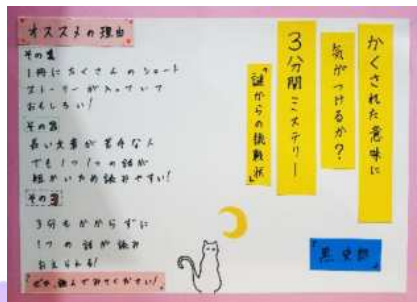 かくされた意味に
気がつけるか?
3分間ミステリー
『謎からの挑戦状』
黒 史郎
オススメの理由
その1
1冊にたくさんのショート
ストーリーが入っていて
おもしろい!
その2
長い文章が苦手な人
でも1つ1つの話が
短かいため読みやすい!
その3
3分もかからずに
1つの話が読み
おえられる!
ぜひ、読んでみてください!